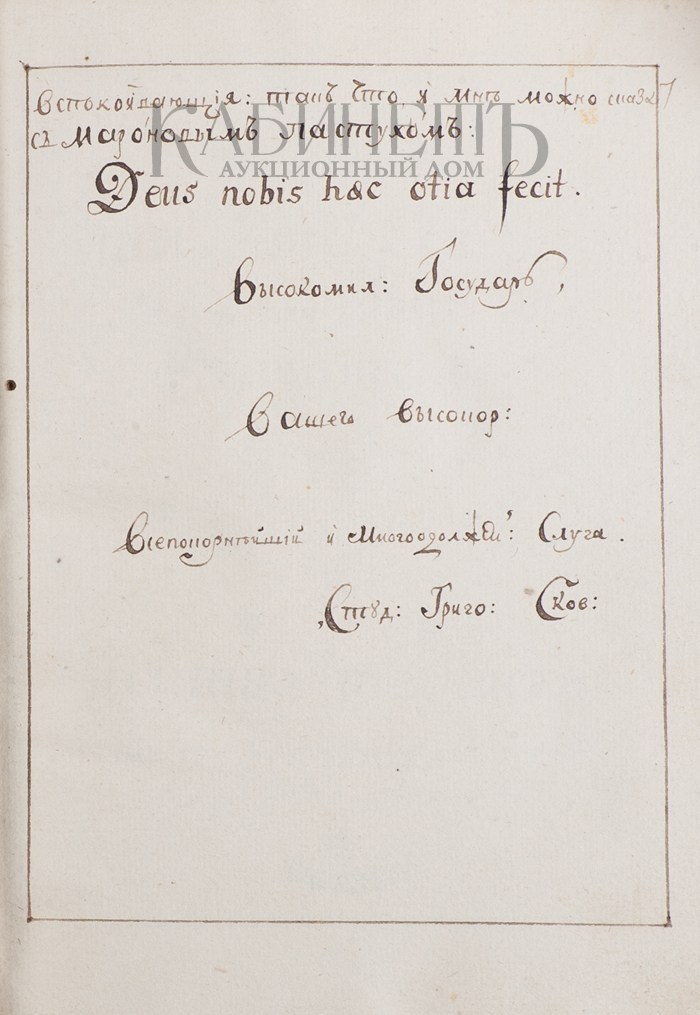 вспокоѣвающія: такъ что и мнѣ можно сказать
съ Мароновымъ Пастухомъ:
КАБИНЕТЪ
АУКЦИОННЫЙ ДОМ
Deus nobis hæc otia fecit.
Высокомил: Государь,
Вашего высокор:
Всепокорнѣйшій и Многоодолжен: Слуга.
Студ: Григо: Сков: